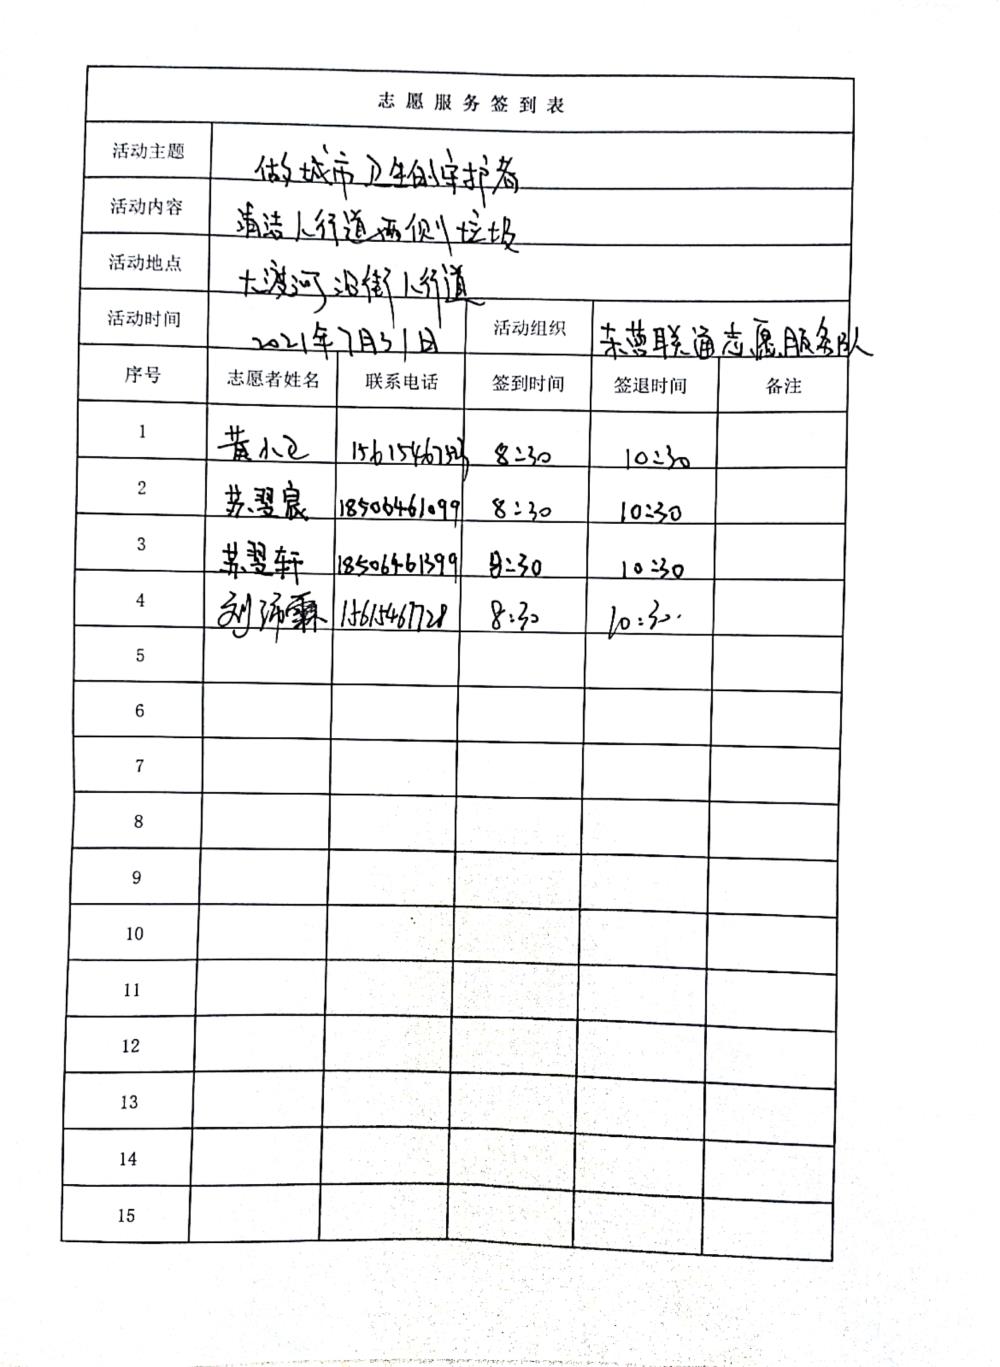 志愿服务签到表
活动主题 做城市卫生的守护者
活动内容 清洁人行道两侧垃圾
活动地点 大渡河沿街人行道
活动时间 2021年7月31日 活动组织 东营联通志愿服务队
序号 志愿者姓名 联系电话 签到时间 签退时间 备注
1 黄小 8:30 10:30
2 苏翌宸 18506461099 8:30 10:30
3 苏翌轩 18506461399 8:30 10:30
4 刘沛霖 15615467728 8:30 10:30
5
6
7
8
9
10
11
12
13
14
15